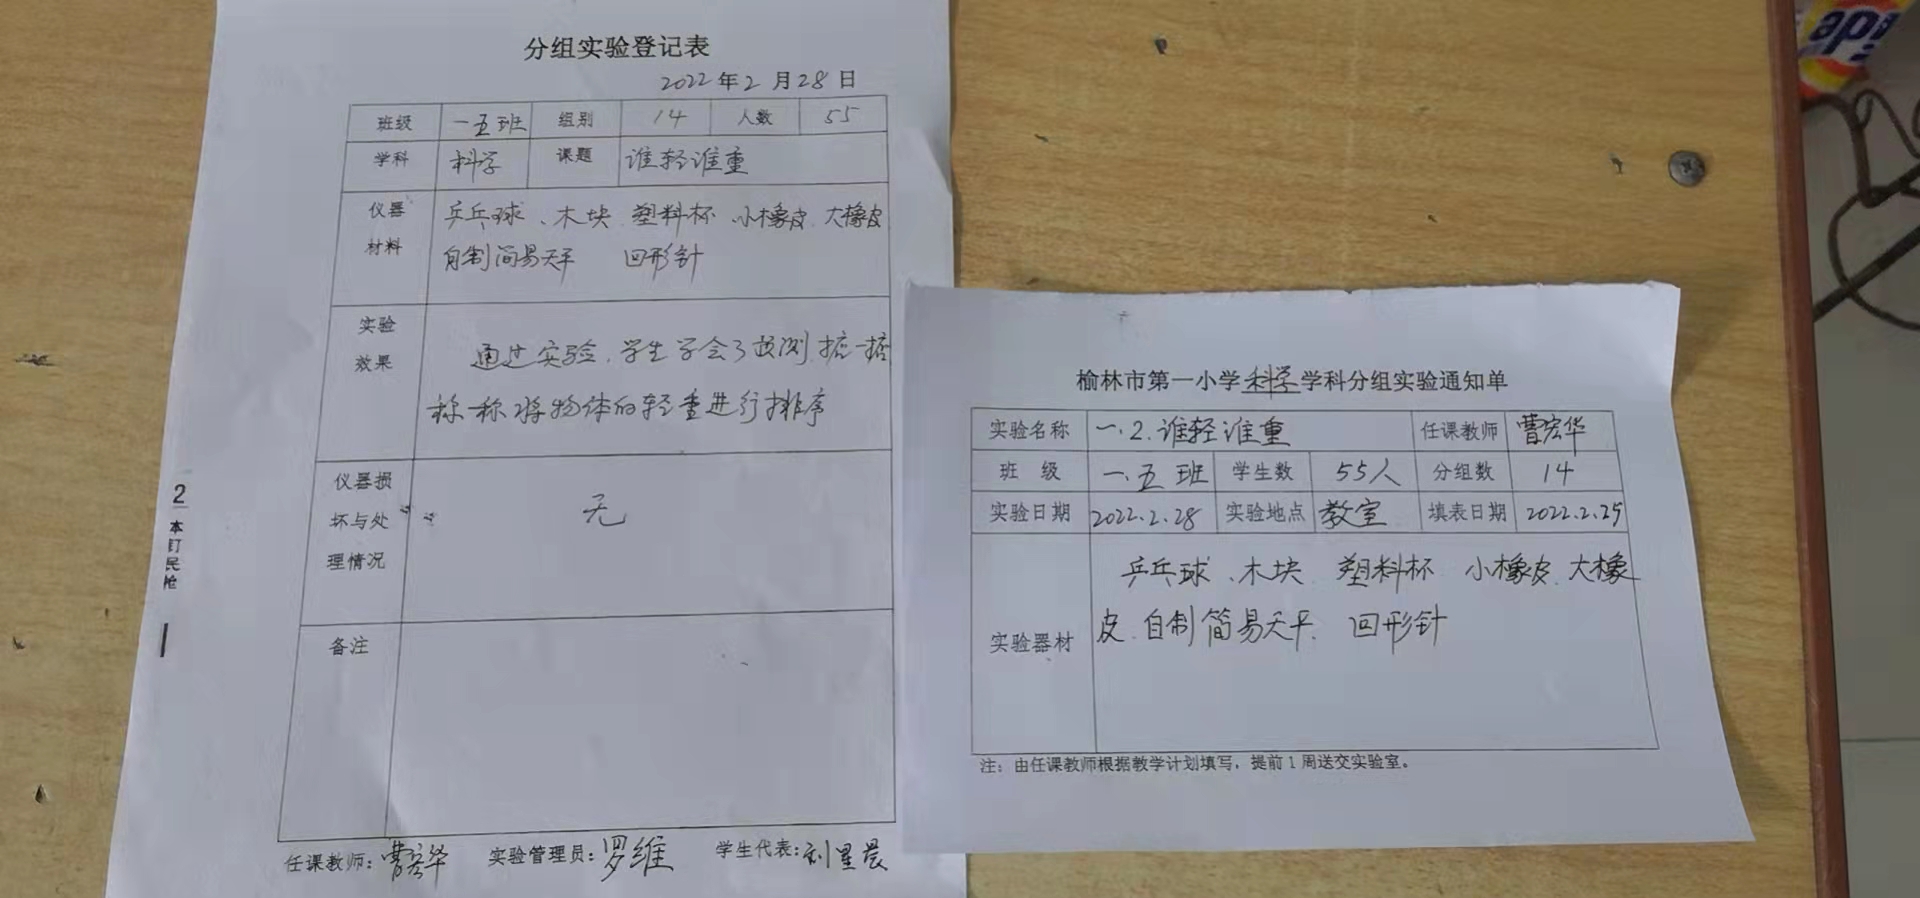 分组实验登记表
2022年2月28日
班级 一五班 组别 14 人数 55
学科 科学 课题 谁轻谁重
仪器材料 乒乓球、木块、塑料杯 小橡皮、大橡皮
自制简易天平 回形针
实验效果 通过实验、学生学会了预测、掂一掂
称一称、将物体的轻重进行排序
仪器损坏与处理情况 无
备注
任课教师:曹宏华 实验管理员:罗维 学生代表:刘星晨
2
榆林市第一小学科学学科分组实验通知单
实验名称 一.2.谁轻谁重 任课教师 曹宏华
班 级 一.五班 学生数 55人 分组数 14
实验日期 2022.2.28 实验地点 教室 填表日期 2022.2.25
实验器材 乒乓球、木块 塑料杯 小橡皮、大橡
皮、自制简易天平、 回形针
注:由任课教师根据教学计划填写,提前1周送交实验室。